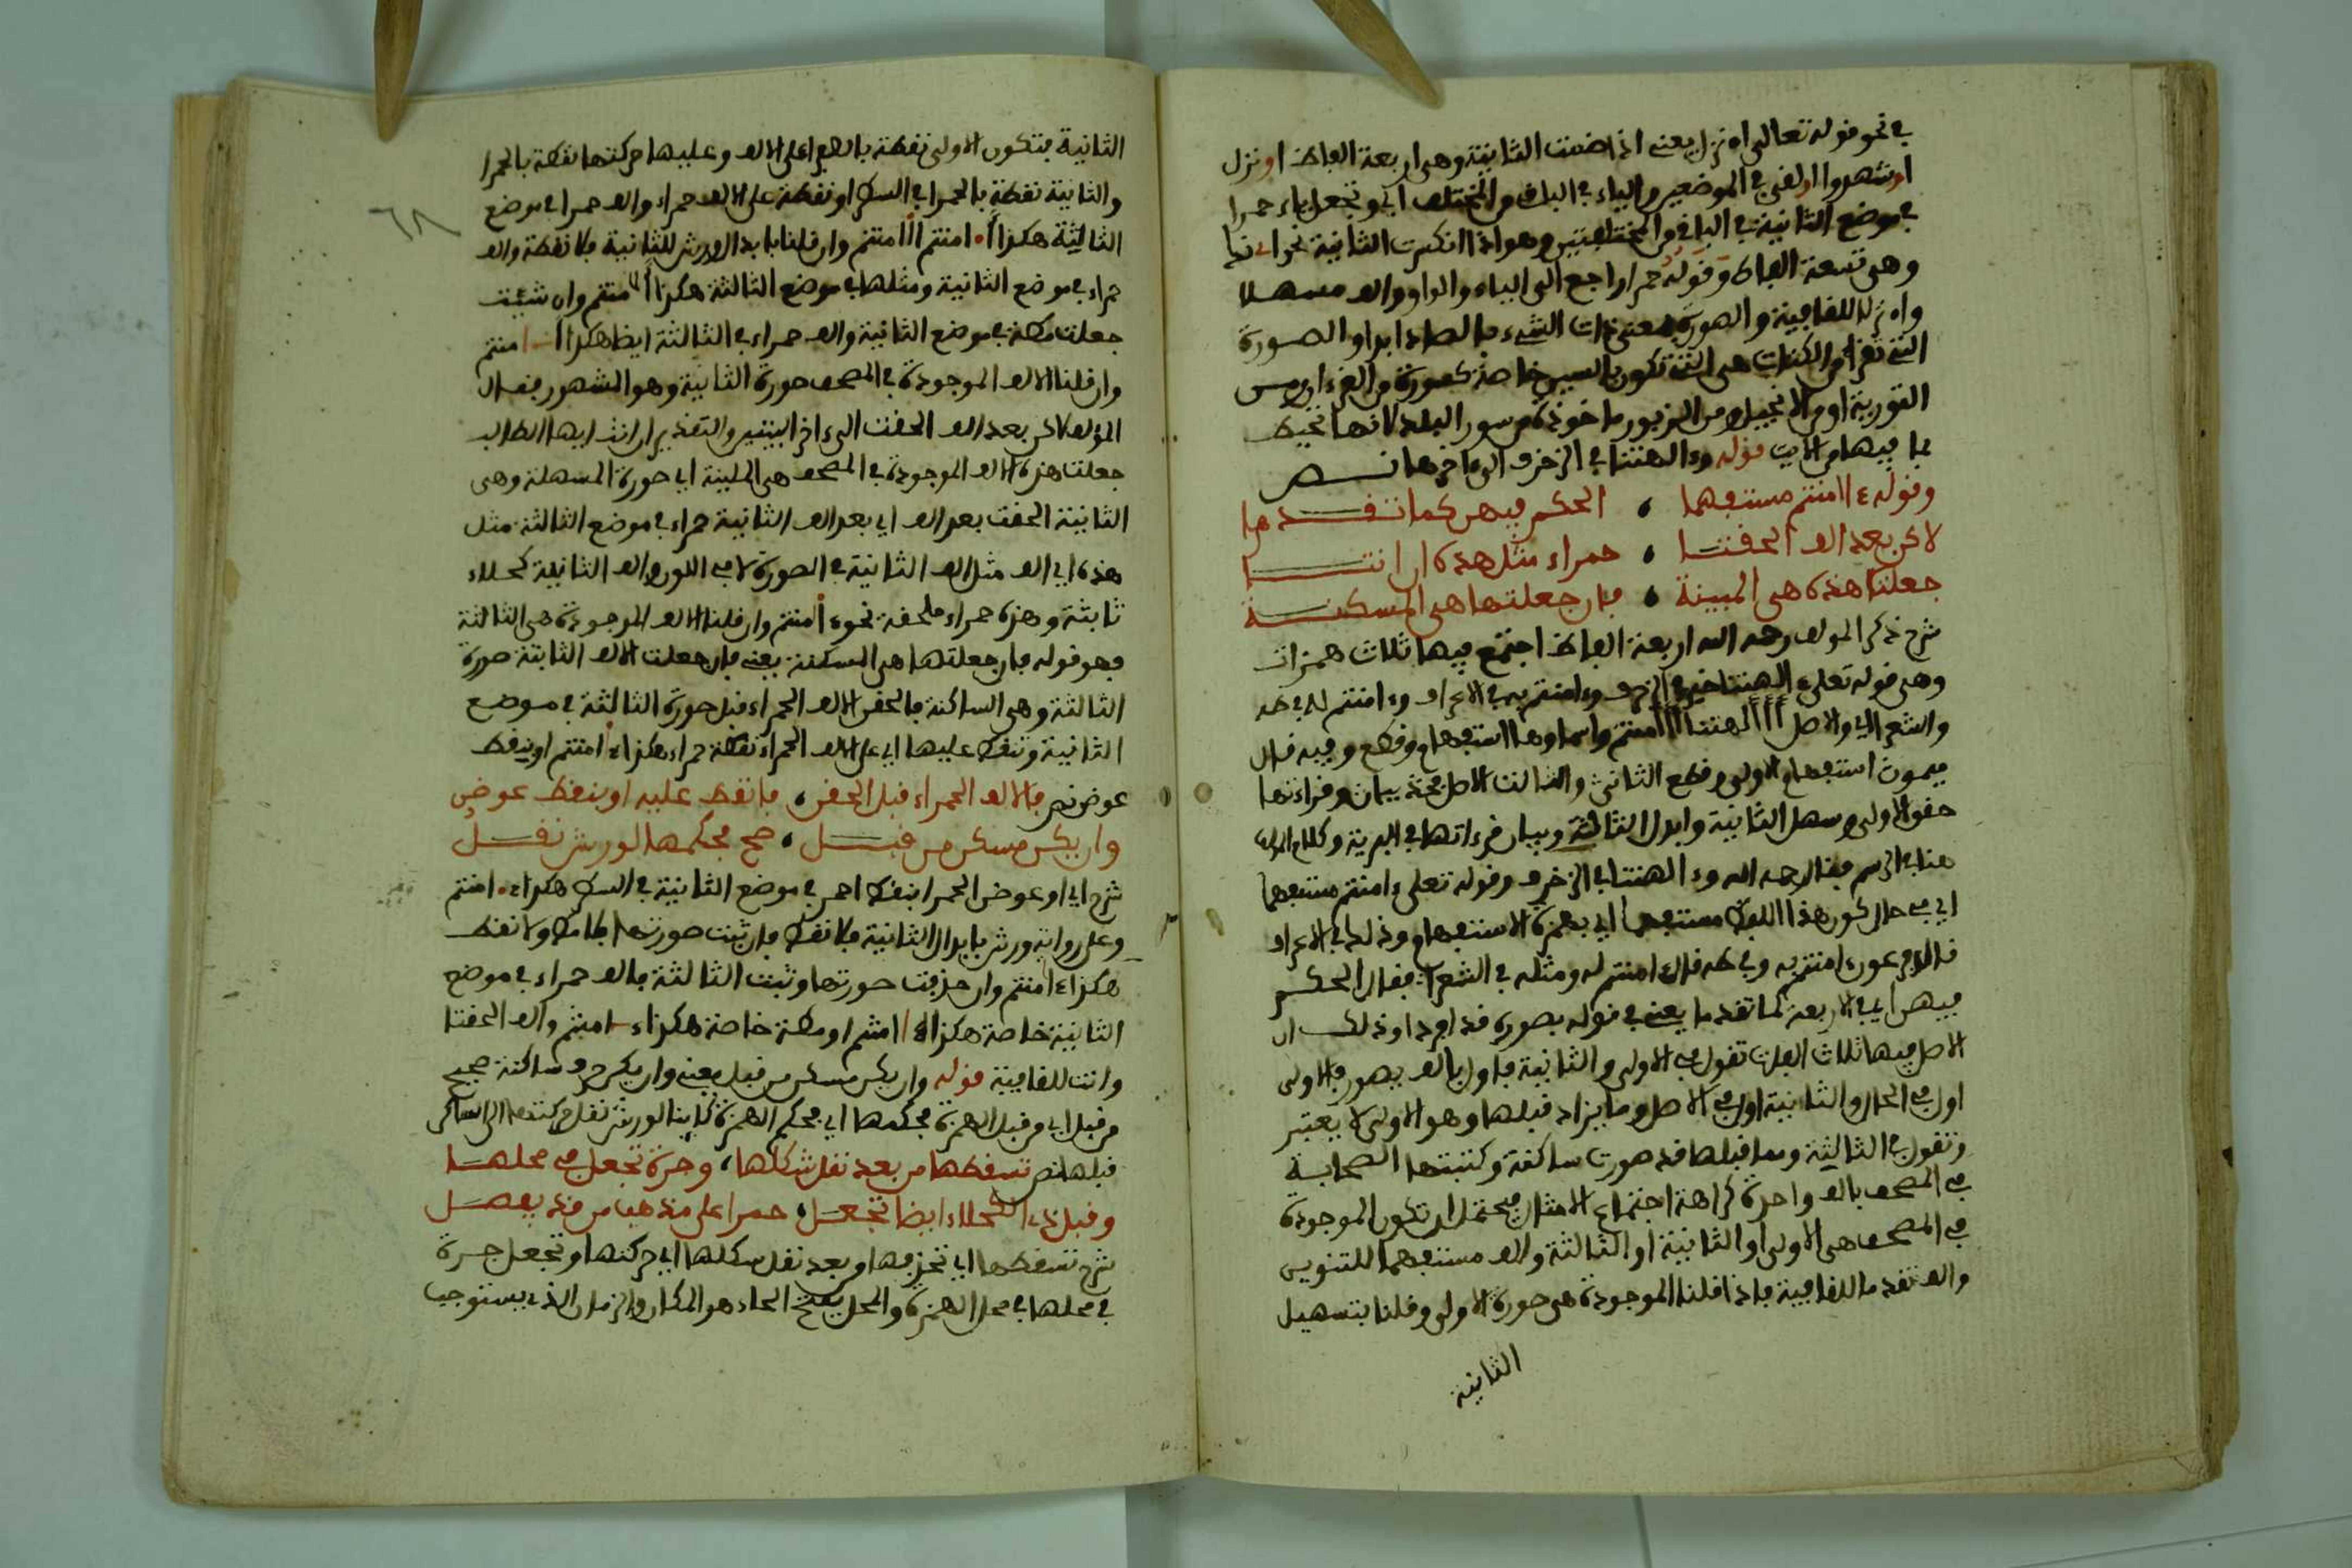 في نحو قوله تعالى اه نزل يعني اذا ضمت الثانية وهي اربعة الفاظ اونزل
اوشهدوا اولفي في الموضعين والياء في الباقي من المختلف اي وتجعل ياء حمرا
في موضع الثانية في الباقي من المختلفتين وهو اذا انكسرت الثانية نحو
وهي تسعة الفاظ وقوله حمرا راجع الى الياء والواو والف مسهلا
واه نزلا للقافية والصورة بمعنى ذات الشيء بالصاد ابدا والصورة
التي تقرا من الكتاب هي التي تكون بالسين خاصة كصورة من القرءان ومن
التورية او من الانجيل ومن الزبور ماخوذة من سور البلد لانها تحيط
بما فيها من الايت قوله وءالهتنا في الزخرف الى ءاخرها نص
وقوله ءاامنتم مستفهما ، الحكم فيهن كما تقدما
لاكن بعد الف الحقتا ، حمراء مثل هذه ان انتا
جعلت هذه هي المبينة ، فان جعلتها هي المسكنة
شرح ذكر المولف رحمه الله اربعة الفاظ اجتمع فيها ثلاث همزات
وهي قوله تعلى ءالهتنا خير في الزخرف وءامنتم به في الاعراف وءامنتم له في طه
والشعراء والاصل أأألهتنا أأأمنتم واسماوها استفهام وقطع وفيه قال
ميمون استفهام الاولى وقطع الثاني والثالث الاصل فخذ بيان وقراءتها
حقق الاولى وسهل الثانية وابدل الثالثة وبيان قرءاتها في البرية وكلام المولف
هنا في الرسم فقال رحمه الله وءالهتنا في الزخرف وقوله تعلى ءامنتم مستفهما
اي في حال كون هذا اللفظ مستفهما اي بهمزة الاستفهام وذلك في الاعراف
قال فرعون ءامنتم به وفي طه قال ءامنتم له ومثله في الشعراء فقال الحكم
فيهن اي في الاربعة كما تقدما يعني في قوله بصورة قد افردا وذلك ان
الاصل فيها ثلاث الفات تقول في الاولى والثانية فاول بالف يصور فالاولى
اول في الحال والثانية اول في الاصل وما يزاد قبلها وهو الاولى لا يعتبر
وتقول في الثالثة وما قبلها قد صورت ساكنة وكتبتها الصحابة
في المصحف بالف واحدة كراهة اجتماع الامثال فيحتمل ان تكون الموجودة
في المصحف هي الاولى او الثانية او الثالثة والف مستفهما للتنوين
والف تقدما للقافية فاذا قلنا الموجودة هي صورة الاولى وقلنا بتسهيل
الثانية
الثانية فتكون الاولى نقطة بالصفراء على الالف وعليها حركتها نقطة بالحمرا
والثانية نقطة بالحمرا في السطر او نقطة على الالف حمراء والف حمرا في موضع
الثالثة هكذا أ. امنتم أاامنتم وان قلنا بابدال ورش للثانية فلا نقطة والف
حمراء في موضع الثانية ومثلها في موضع الثالثة هكذا أاامنتم وان شئت
جعلت مطة في موضع الثانية والف حمراء في الثالثة ايضا هكذا أ‍ـامنتم
وان قلنا الالف الموجودة في المصحف صورة الثانية وهو المشهور فقال
المولف لاكن بعد الف الحقت الى ءاخر البيتين والتقدير ان انت ايها الطالب
جعلت هذه الالف الموجودة في المصحف هي الملينة اي صورة المسهلة وهي
الثانية الحقت بعد الف اي بعد الف الثانية حمراء في موضع الثالثة مثل
هذه اي الف مثل الف الثانية في الصورة لا في اللون والف الثانية كحلاء
ثابتة وهذه حمراء ملحقة نحو ءاامنتم وان قلنا الالف الموجودة هي الثالثة
فهو قوله فان جعلتها هي المسكنة يعني فان جعلت الالف الثابتة صورة
الثالثة وهي الساكنة فالحق الالف الحمراء قبل صورة الثالثة في موضع
الثانية وتنقط عليها اي على الالف الحمراء نقطة حمراء هكذا ءاامنتم او ينقط
عوض نص فالالف الحمراء قبل الحقن ، فانقط عليه او ينقط عوض
وان يكن مسكن من قبل ، صح فحكمها لورش نقل
شرح اي او عوض الحمرا بنقط احمر في موضع الثانية في السطر هكذا ء. امنتم
وعلى رواية ورش بابدال الثانية فلا نقط فان ثبت صورتها والا مط ولا نقط
هكذا ءاامنتم وان حذفت صورتها وثبت الثالثة فالف حمراء في موضع
الثانية خاصة هكذا ءاامنتم او مطة خاصة هكذا ءـامنتم والف الحقتا
وانت للقافية قوله وان يكن مسكن من قبل يعني وان يكن حرف ساكنة صحيح
من قبل اي من قبل الهمزة فحكمها اي فحكم الهمزة لورش نقل حركتها الى الساكن
قبلها نص تسقطها من بعد نقل شكلها ، وجرة تجعل في محلها
وقبل ذا الكحلاء ايضا تجعل ، حمرا على مذهب من قد يفصل
شرح تسقطها اي تحذفها من بعد نقل شكلها اي حركتها وتجعل جرة
في محلها في محل الهمزة والمحل بفتح الحاء هو المكان والزمان الذي يستوجب